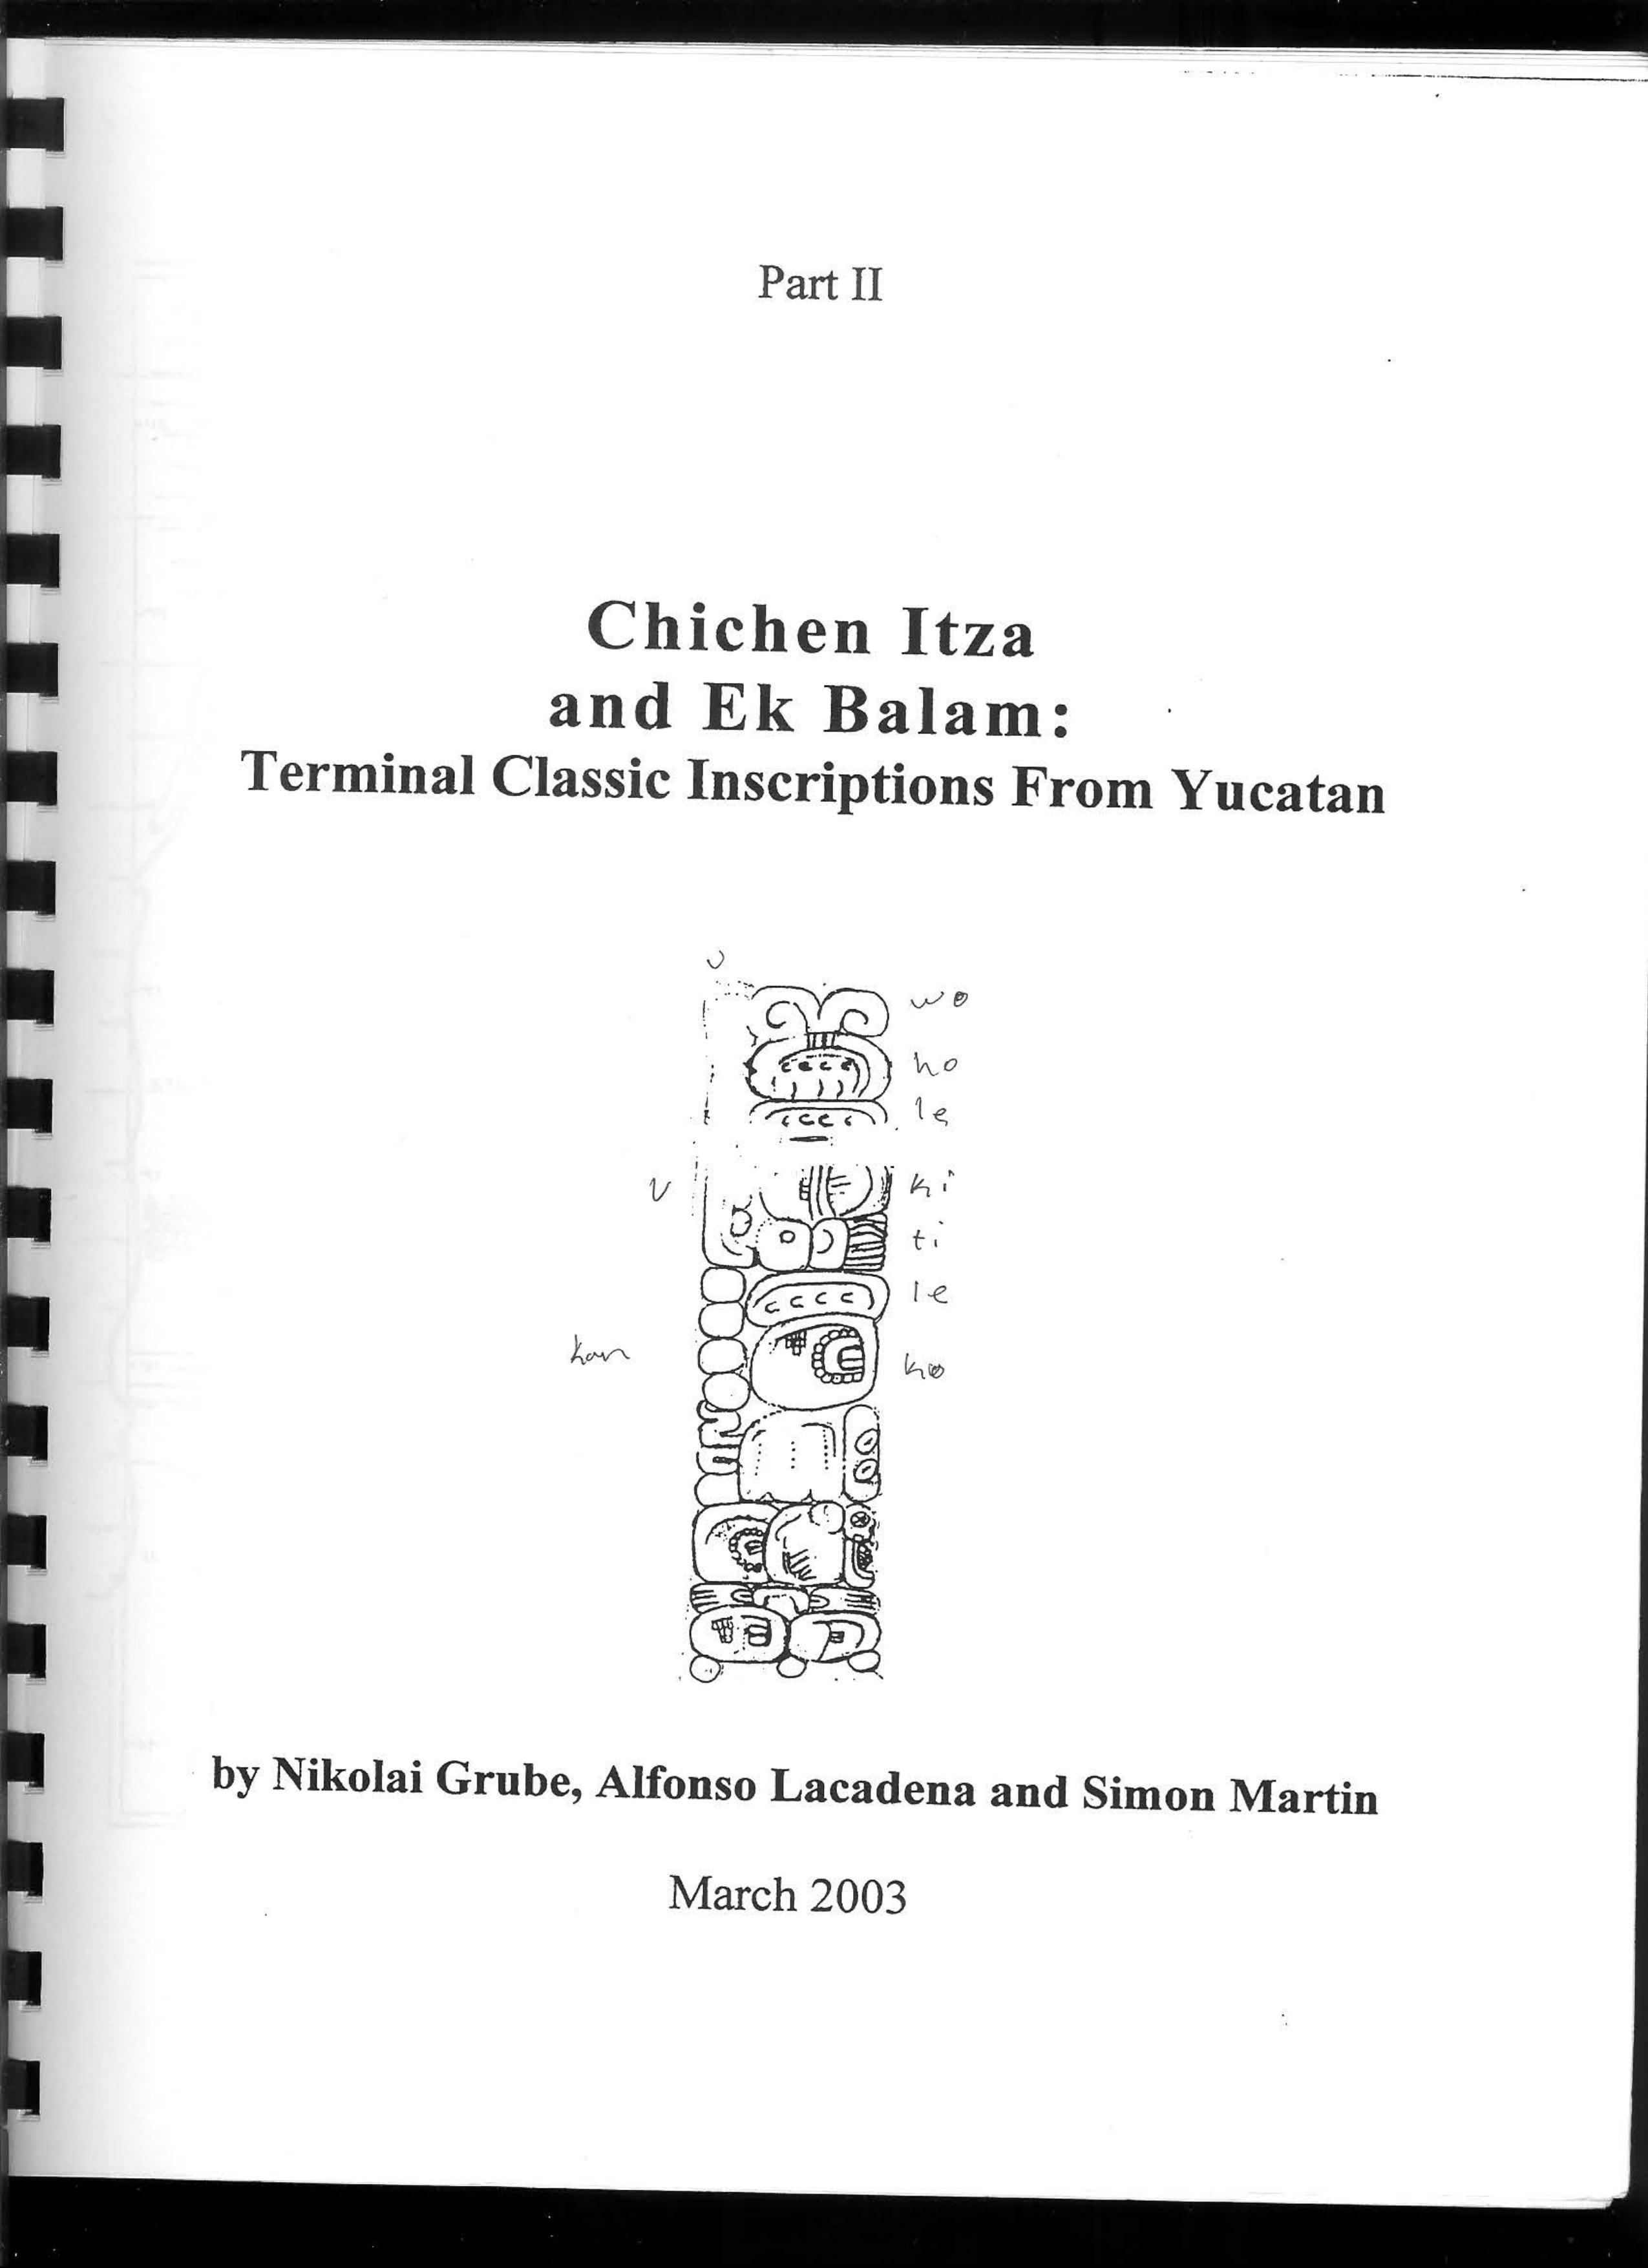 Part II
Chichen Itza
and Ek Balam:
Terminal Classic Inscriptions From Yucatan
u
wo
ho
le
u
ki
ti
le
kan
ko
by Nikolai Grube, Alfonso Lacadena and Simon Martin
March 2003